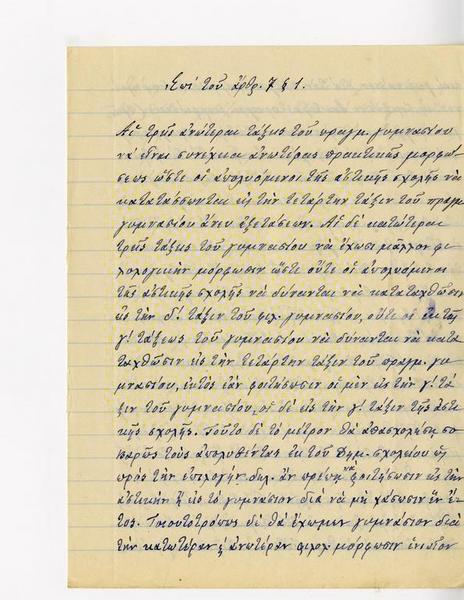 Ἐπὶ τοῦ ἄρθρ. 7 § 1.
Αἱ τρεῖς ἀνώτεραι τάξεις τοῦ πραγμ. γυμνασίου
νὰ εἶναι συνέχεια ἀνωτέρας πρακτικῆς μορφώ-
σεως ὥστε οἱ ἀπολυόμενοι τῆς ἀστικῆς σχολῆς νὰ
κατατάσσωνται εἰς τὴν τετάρτην τάξιν τοῦ πραγμ.
γυμνασίου ἄνευ ἐξετάσεων. Αἱ δὲ κατώτεραι
τρεῖς τάξεις τοῦ γυμνασίου νὰ ἔχωσι μᾶλλον φι-
λολογικὴν μόρφωσιν ὥστε οὔτε οἱ ἀπολυόμενοι
τῆς ἀστικῆς σχολῆς νὰ δύνανται νὰ καταταχθῶσιν
εἰς τὴν δ΄. τάξιν τοῦ φιλ. γυμνασίου, οὔτε οἱ ἐκ τῆς
γ΄. τάξεως τοῦ γυμνασίου νὰ δύνανται νὰ κατα-
ταχθῶσιν εἰς τὴν τετάρτην τάξιν τοῦ πραγμ. γυ-
μνασίου, ἐκτὸς ἐὰν φοιτήσωσιν οἱ μὲν εἰς τὴν γ΄. τά-
ξιν τοῦ γυμνασίου, οἱ δὲ εἰς τὴν γ΄ τάξιν τῆς ἀστι-
κῆς σχολῆς. Τοῦτο δὲ τὸ μέτρον θὰ ἀπασχολήσῃ σο-
βαρῶς τοὺς ἀπολυθέντας ἐκ τοῦ δημ. σχολείου ὡς
πρὸς τὴν ἐκλογὴν δηλ. ἂν πρέπῃ νὰ φοιτήσωσιν εἰς τὴν
ἀστικὴν ἢ εἰς τὸ γυμνάσιον διὰ νὰ μὴ χάσωσιν ἓν ἔ-
τος. Τοιουτοτρόπως δὲ θὰ ἔχωμεν γυμνάσιον διὰ
τὴν κατωτέραν & ἀνωτέραν φιλολ. μόρφωσιν